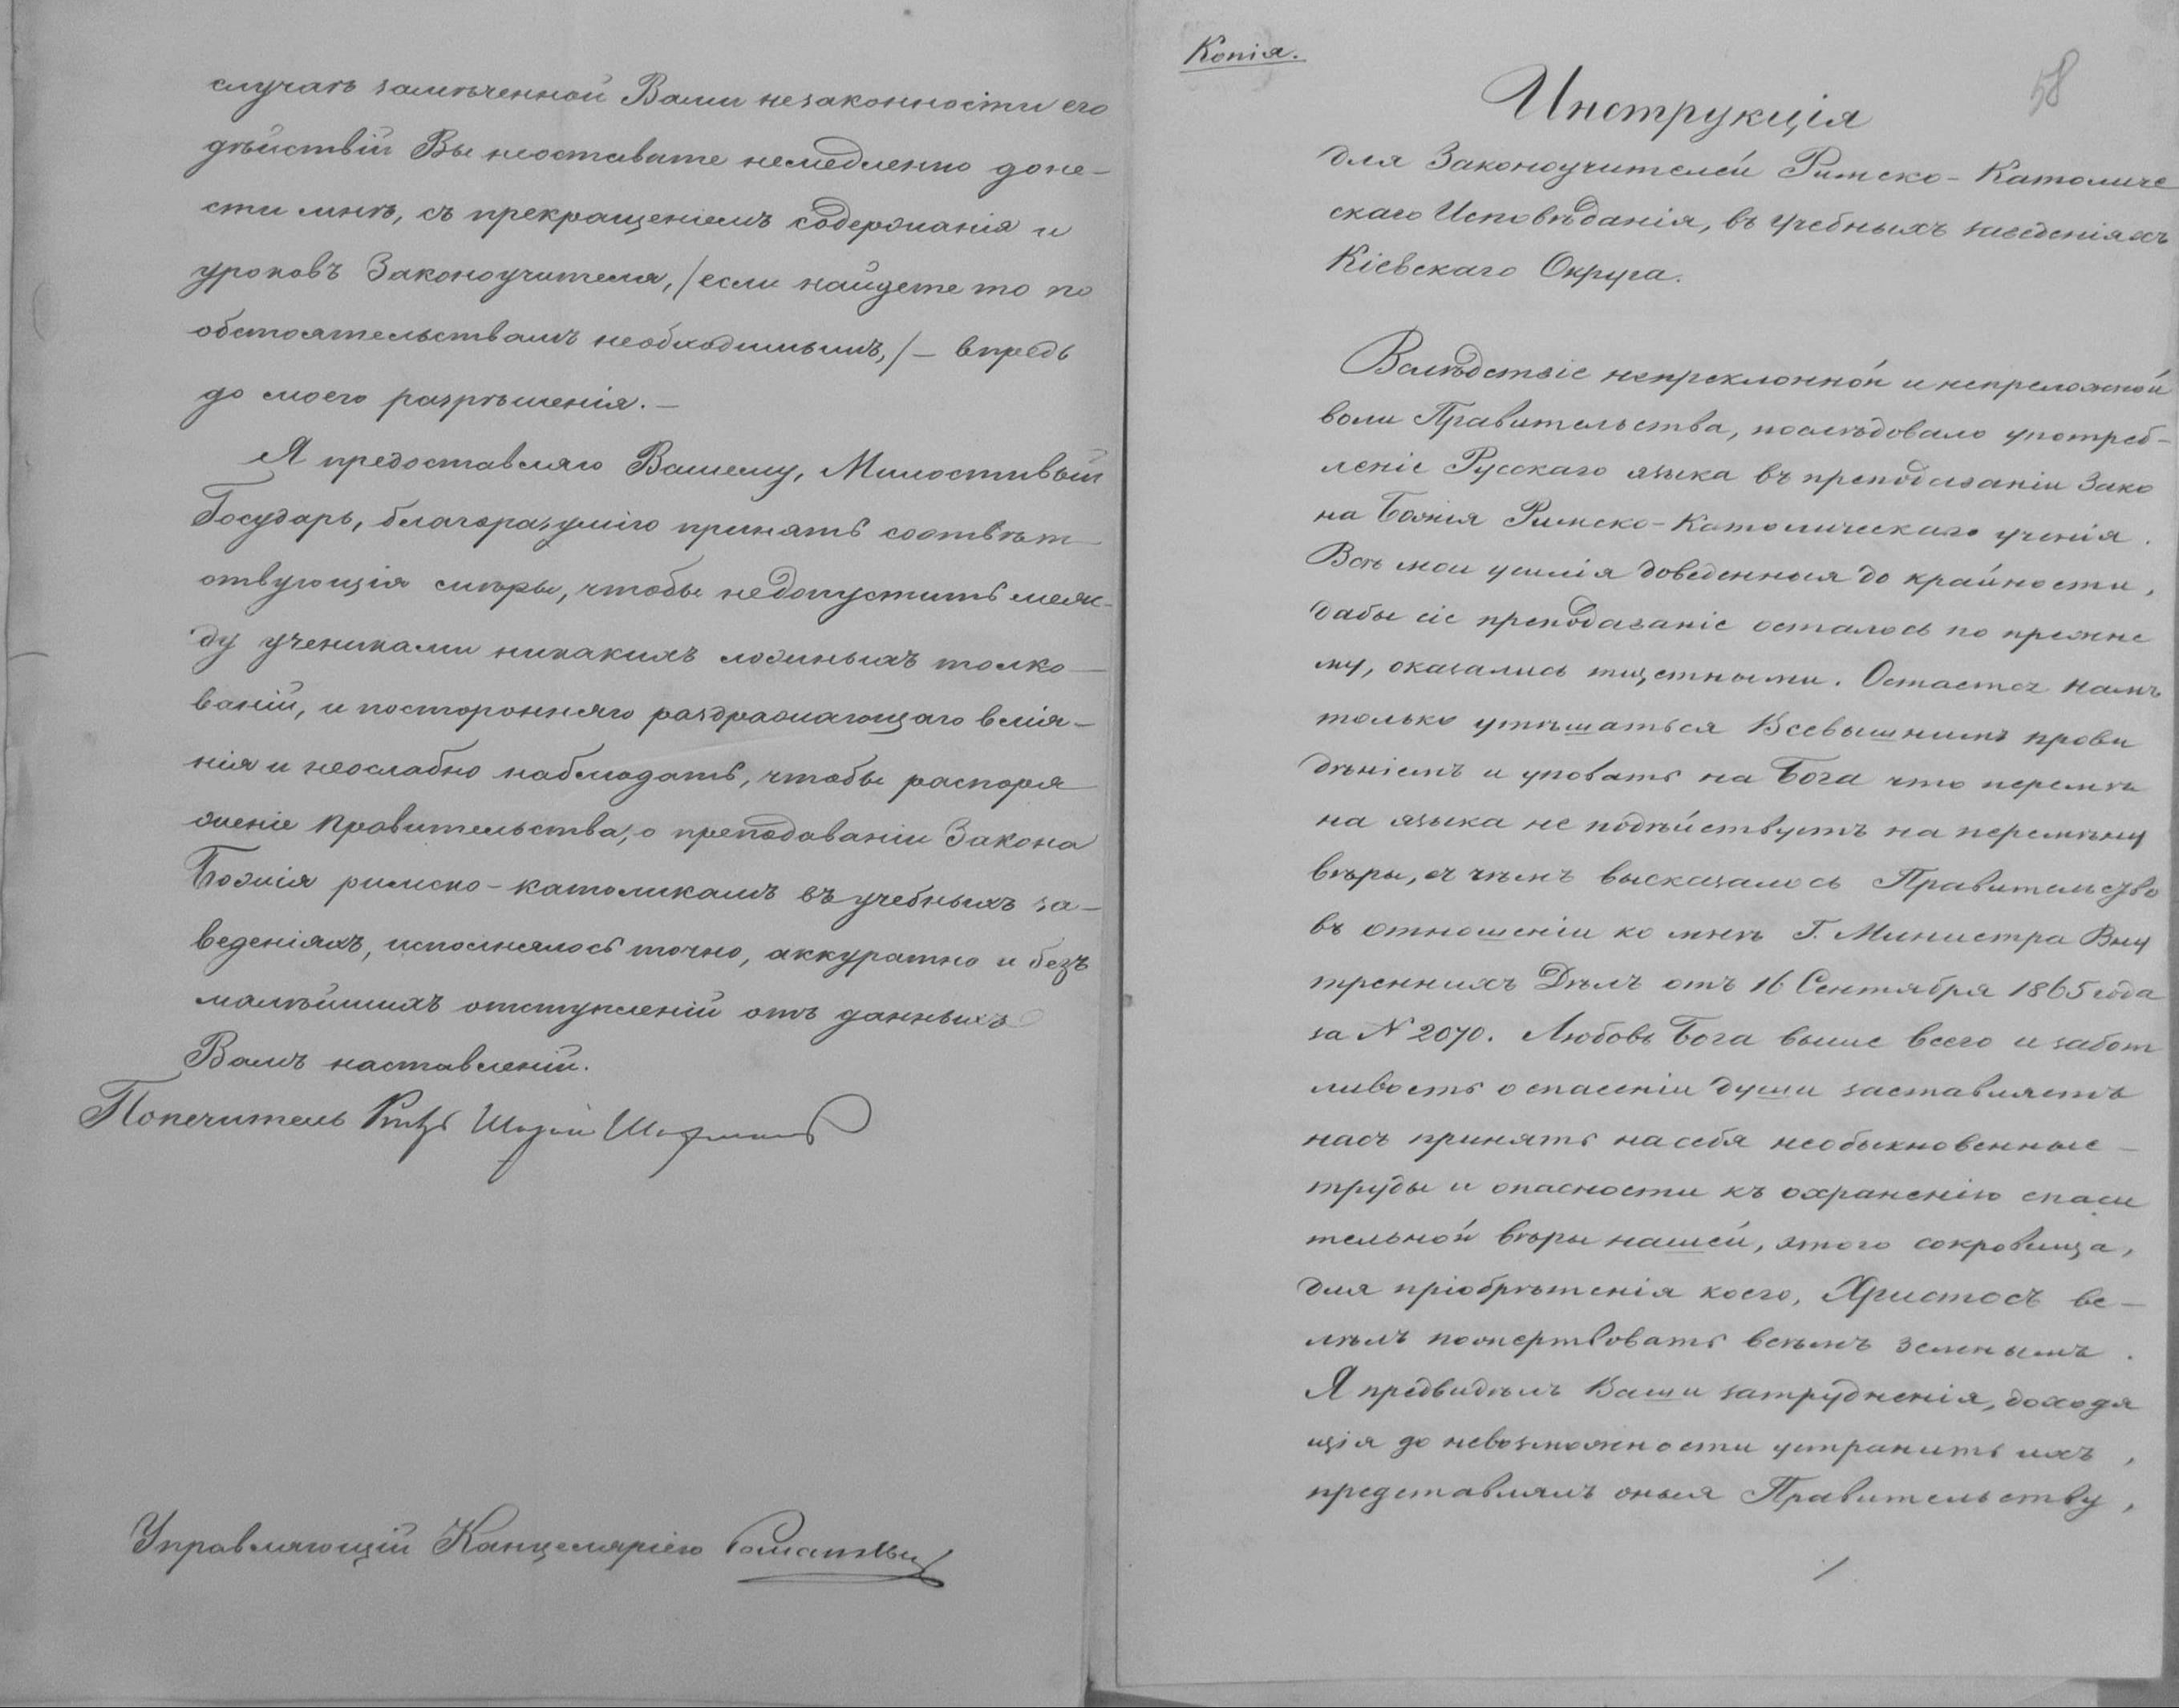 случаѣ замѣченной Вами незаконности его
дѣйствій Вы неоставите немедленно доне-
сти мнѣ, съ прекращеніемъ содержанія и
уроковъ Законоучителя, /если найдете то по
обстоятельствамъ необходимымъ,/ – впредь
до моего разрѣшенія. –
Я предоставляю Вашему, Милостивый
Государь, благоразумію принять соотвѣт-
ствующія мѣры, чтобы недопустить меж-
ду учениками никакихъ ложныхъ толко-
ваній, и посторонняго раздражающаго влія-
нія и неослабно наблюдать, чтобы распоря
женіе Правительства, о преподаваніи Закона
Божія римско-католикамъ въ учебныхъ за-
веденіяхъ, исполнялось точно, аккуратно и безъ
малѣйшихъ отступленій отъ данныхъ
Вамъ наставленій.
Попечитель Князь
Управляющій Канцеляріею
Копія.
58
Инструкція
для Законоучителей Римско-Католиче
скаго Исповѣданія, въ учебныхъ заведеніяхъ
Кіевскаго Округа.
Вслѣдствіе непреклонной и непреложной
воли Правительства, послѣдовало употреб-
леніе Русскаго языка въ преподаваніи Зако
на Божія Римско-Католическаго ученія.
Всѣ мои усилія доведенныя до крайности,
дабы сіе преподаваніе осталось по прежне
му, оказались тщетными. Остается намъ
только утѣшаться Всевышнимъ прови
дѣніемъ и уповать на Бога что перемѣ
на языка не подѣйствуетъ на перемѣну
вѣры, съ чѣмъ высказалось Правительство
въ отношеніи ко мнѣ Г. Министра Вну
треннихъ Дѣлъ отъ 16 Сентября 1865 года
за N 2070. Любовь Бога выше всего и забот
ливость о спасеніи души заставляетъ
насъ принять на себя необыкновенные –
труды и опасности къ охраненію спаси
тельной вѣры нашей, этого сокровища,
для пріобрѣтенія коего, Христосъ ве-
лѣлъ пожертвовать всѣмъ земнымъ.
Я предвидѣлъ Ваши затрудненія, доходя
щія до невозможности устранить ихъ,
представлялъ оныя Правительству,